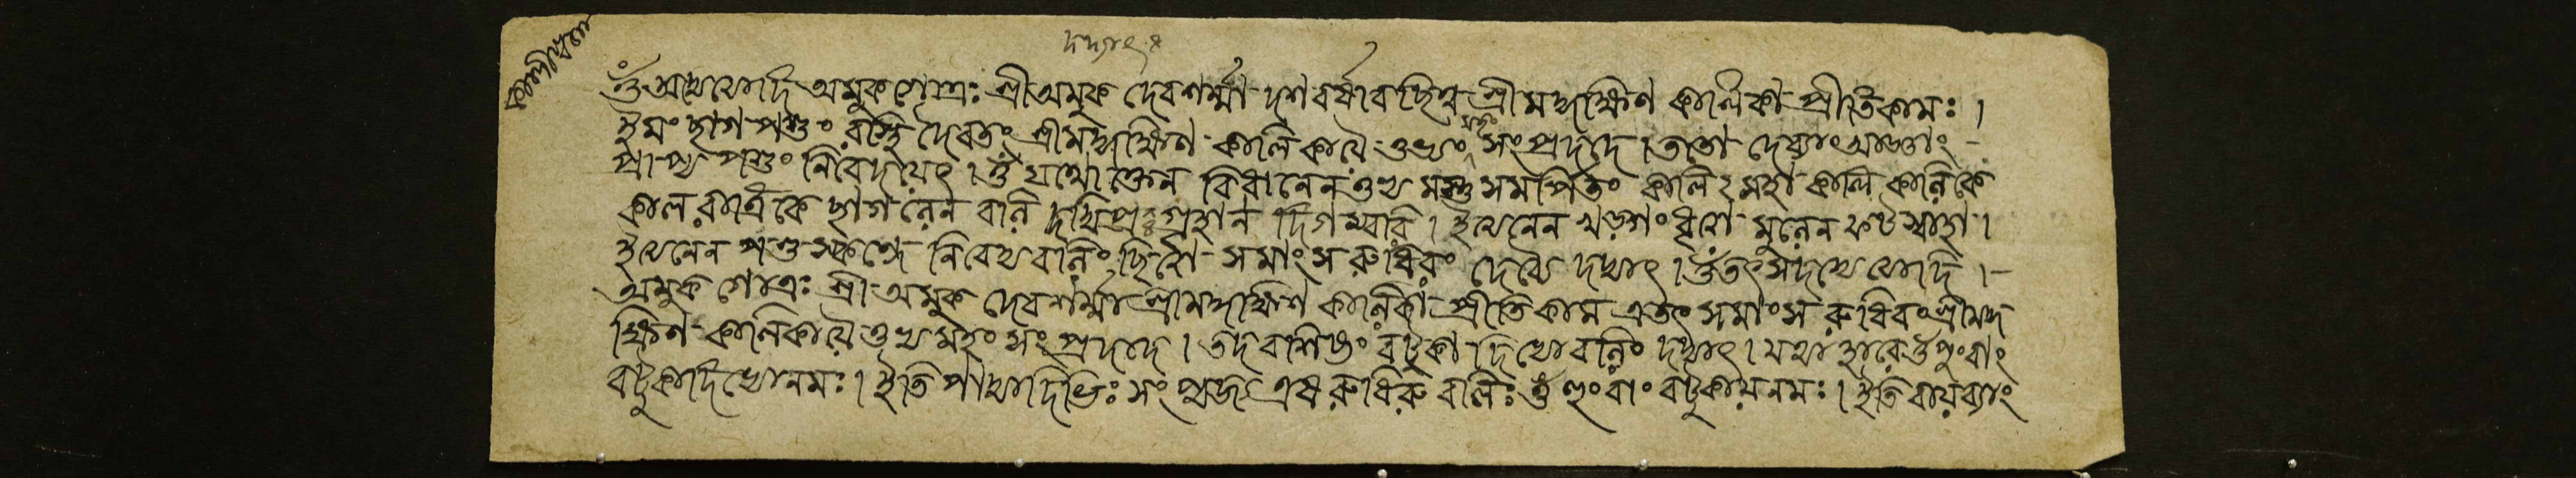 ওঁ অদ্যেত্যাদি অমুক গোত্রঃ শ্রীঅমুক দেবশর্ম্মা দশ বর্ষাবছিন্ন শ্রীমদ্দক্ষিণ কালিকা প্রীতিকামঃ ।
ইমং ছাগ পশুং বহ্নি দৈবতং শ্রীমদ্দক্ষিণ কালিকায়ৈ তুভ্যং সংপ্রদদে । ততো দেব্যাং আজ্ঞাং
প্রাপ্য পশুং নিবেদয়েৎ । ওঁ যথোক্তেন বিধানেন তুভ্যমস্তু সমর্পিতং কালি ২ মহাকালি কালিকে
কালরাত্রিকে ছাগলেন বলি গ্রহান দিগম্বরি । ইত্যনেন খড়্গং ধৃত্বা মূলেন ফট স্বাহা ।
ইত্যনেন পশু স্কন্ধে নিবেদ্য বলিং ছিত্বা সমাংস রুধিরং দেব্যৈ দদ্যাৎ । ওঁ তৎসদদ্যেত্যাদি ।
অমুক গোত্রঃ শ্রীঅমুক দেবশর্ম্মা শ্রীমদ্দক্ষিণ কালিকা প্রীতিকাম এতৎ সমাংস রুধিরং শ্রীমদ্দ
ক্ষিণ কালিকায়ৈ তুভ্যমহং সংপ্রদদে । তদবশিষ্টং বটুকাদিভ্যো বলিং দদ্যাৎ । যথা
বটুকাদিভ্যো নমঃ । ইতি পাদ্যাদিভিঃ সংপূজ্য এষ রুধির বলিঃ ওঁ বাং বটুকায় নমঃ । ইতি বায়ব্যাং